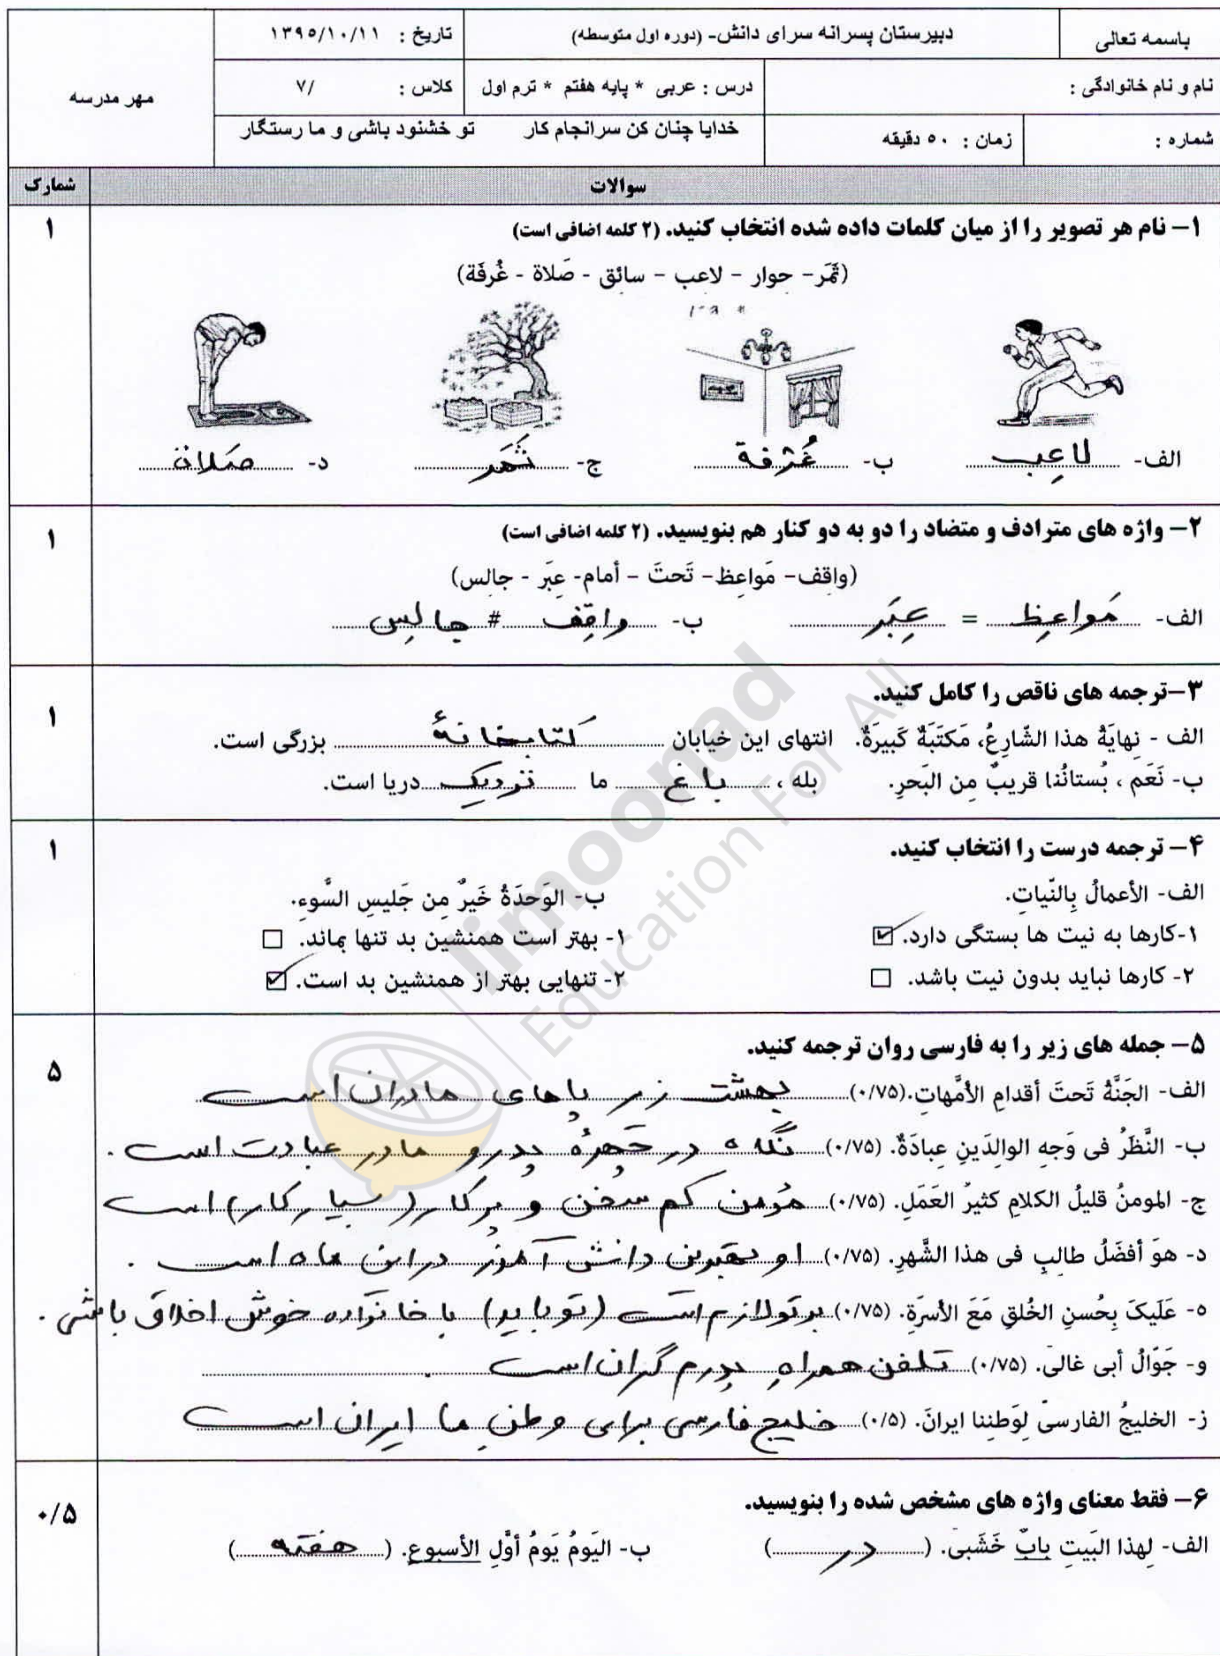 باسمه تعالی
دبیرستان پسرانه سرای دانش- (دوره اول متوسطه)
تاریخ : ۱۳۹۵/۱۰/۱۱
مهر مدرسه
نام و نام خانوادگی :
درس : عربی * پایه هفتم * ترم اول
کلاس : ۷/
شماره :
زمان : ۵۰ دقیقه
خدایا چنان کن سرانجام کار تو خشنود باشی و ما رستگار
سوالات
شمارک
۱– نام هر تصویر را از میان کلمات داده شده انتخاب کنید. (۲ کلمه اضافی است)
۱
(ثَمَر- حِوار - لاعب – سائق - صَلاة - غُرفَة)
الف- لاعِب ب- غُرفة ج- ثَمَر د- صَلاة
۲– واژه های مترادف و متضاد را دو به دو کنار هم بنویسید. (۲ کلمه اضافی است)
۱
(واقِف– مَواعِظ– تَحتَ – أمام- عِبَر - جالِس)
الف- مَواعِظ = عِبَر ب- واقِف # جالِس
۳–ترجمه های ناقص را کامل کنید.
۱
الف - نِهایَةُ هذا الشّارِعُ، مَکتَبَةٌ کَبیرَةٌ. انتهای این خیابان کتابخانهٔ بزرگی است.
ب- نَعَم ، بُستانُنا قریبٌ مِن البَحرِ. بله ، باغ ما نزدیک دریا است.
۴– ترجمه درست را انتخاب کنید.
۱
الف- الأعمالُ بِالنّیاتِ. ب- الوَحدَةُ خَیرٌ مِن جَلیسِ السُّوءِ.
۱-کارها به نیت ها بستگی دارد. ☑ ۱- بهتر است همنشین بد تنها بماند. □
۲- کارها نباید بدون نیت باشد. □ ۲- تنهایی بهتر از همنشین بد است. ☑
۵– جمله های زیر را به فارسی روان ترجمه کنید.
۵
الف- الجَنَّةُ تَحتَ أقدامِ الأمَّهاتِ.(۰/۷۵) بهشت زیر پاهای مادران است
ب- النَّظَرُ فی وَجهِ الوالِدَینِ عِبادَةٌ. (۰/۷۵) نگاه در چهرهٔ پدر و مادر عبادت است .
ج- المومنُ قلیلُ الکلامِ کثیرُ العَمَلِ. (۰/۷۵) مُؤمن کم سخن و پرکار (بسیار کار) است
د- هوَ أفضَلُ طالِبٍ فی هذا الشَّهرِ. (۰/۷۵) او بهترین دانش آموز در این ماه است .
ه- عَلَیکَ بِحُسنِ الخُلقِ مَعَ الأسرَةِ. (۰/۷۵) بر تو لازم است (تو باید) با خانواده خوش اخلاق باشی .
و- جَوّالُ أبی غالی. (۰/۷۵) تلفن همراهِ پدرم گران است .
ز- الخلیجُ الفارسیّ لِوَطنِنا ایرانَ. (۰/۵) خلیج فارس برای وطنِ ما ایران است
۶– فقط معنای واژه های مشخص شده را بنویسید.
۰/۵
الف- لِهذا البَیتِ بابٌ خَشَبی. ( در ) ب- الیَومُ یَومُ أوَّلِ الأسبوعِ. ( هفته )
limoonad
Education For All